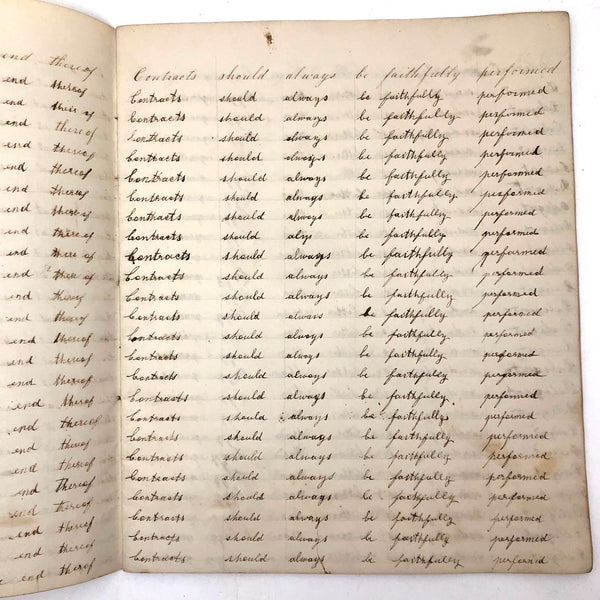 end thereof
end thereof
end thereof
end thereof
end thereof
end thereof
end thereof
end thereof
end thereof
end thereof
end thereof
end thereof
end thereof
end thereof
end thereof
end thereof
end thereof
end thereof
end thereof
end thereof
end thereof
end thereof
end thereof
end thereof
end thereof
Contracts should always be faithfully performed
Contracts should always be faithfully performed
Contracts should always be faithfully performed
Contracts should always be faithfully performed
Contracts should always be faithfully performed
Contracts should always be faithfully performed
Contracts should always be faithfully performed
Contracts should always be faithfully performed
Contracts should alys be faithfully performed
Contracts should always be faithfully performed
Contracts should always be faithfully performed
Contracts should always be faithfully performed
Contracts should always be faithfully performed
Contracts should always be faithfully performed
Contracts should always be faithfully
Contracts should always be faithfully performed
Contracts should always be faithfully performed
Contracts should always be faithfully performed
Contracts should always be faithfully performed
Contracts should always be faithfully performed
Contracts should always be faithfully performed
Contracts should always be faithfully performed
Contracts should always be faithfully performed
Contracts should always be faithfully performed
Contracts should always be faithfully performed